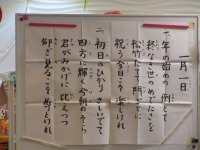 一月一日
一、年の始めの例とて
終なき世のめでたさを
松竹たてて門ごとに
祝う今日こそ楽しけれ
二、初日のひかりさしいでて
四方に輝く今朝のそら
君がみかげに比えつつ
仰ぎ見るこそ尊とけれ